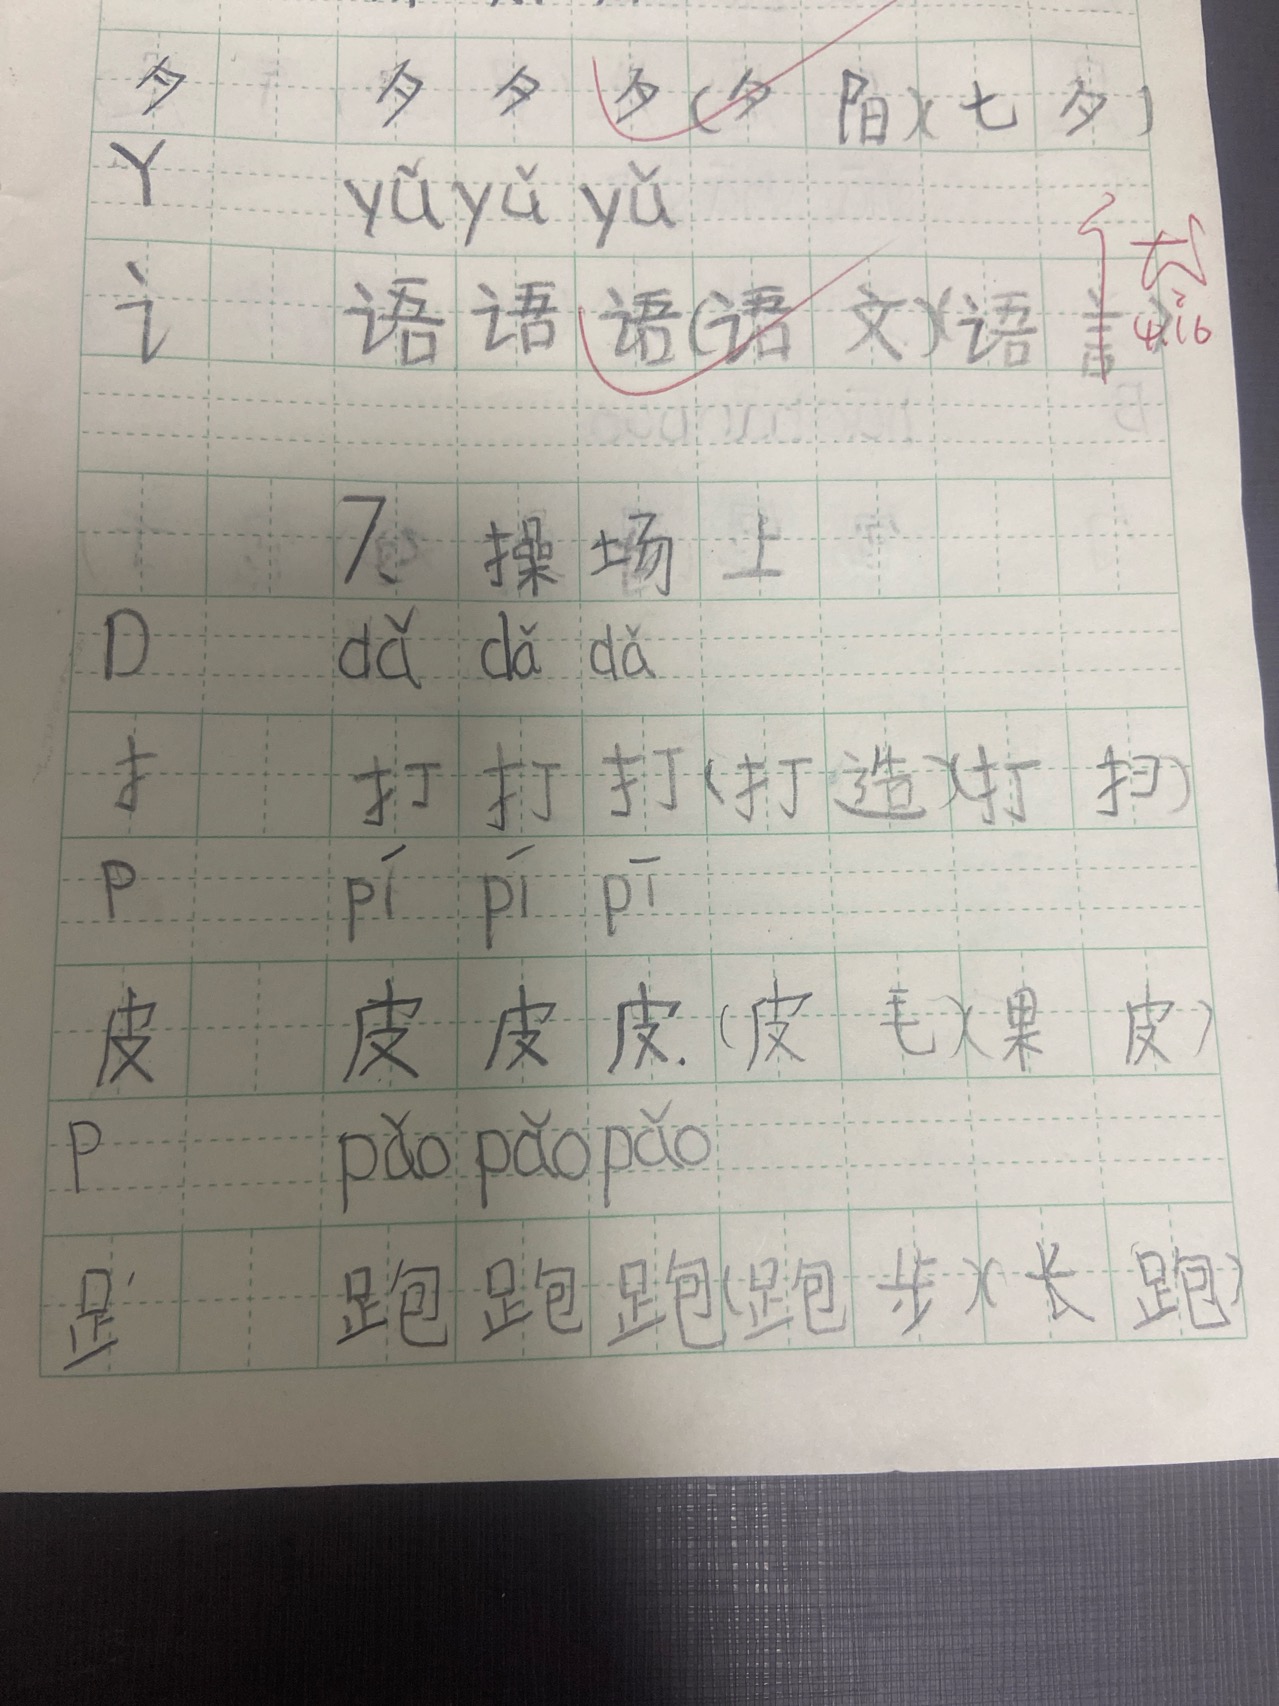 夕 夕 夕 夕 (夕 阳)(七 夕)
Y yǔ yǔ yǔ
讠 语 语 语 (语 文)(语 言)
4.16
7、操场上
D dǎ dǎ dǎ
扌 打 打 打 (打 造)(打 扫)
P pí pí pī
皮 皮 皮 皮. (皮 毛)(果 皮)
P pǎo pǎo pǎo
𧾷 跑 跑 跑 (跑 步)(长 跑)